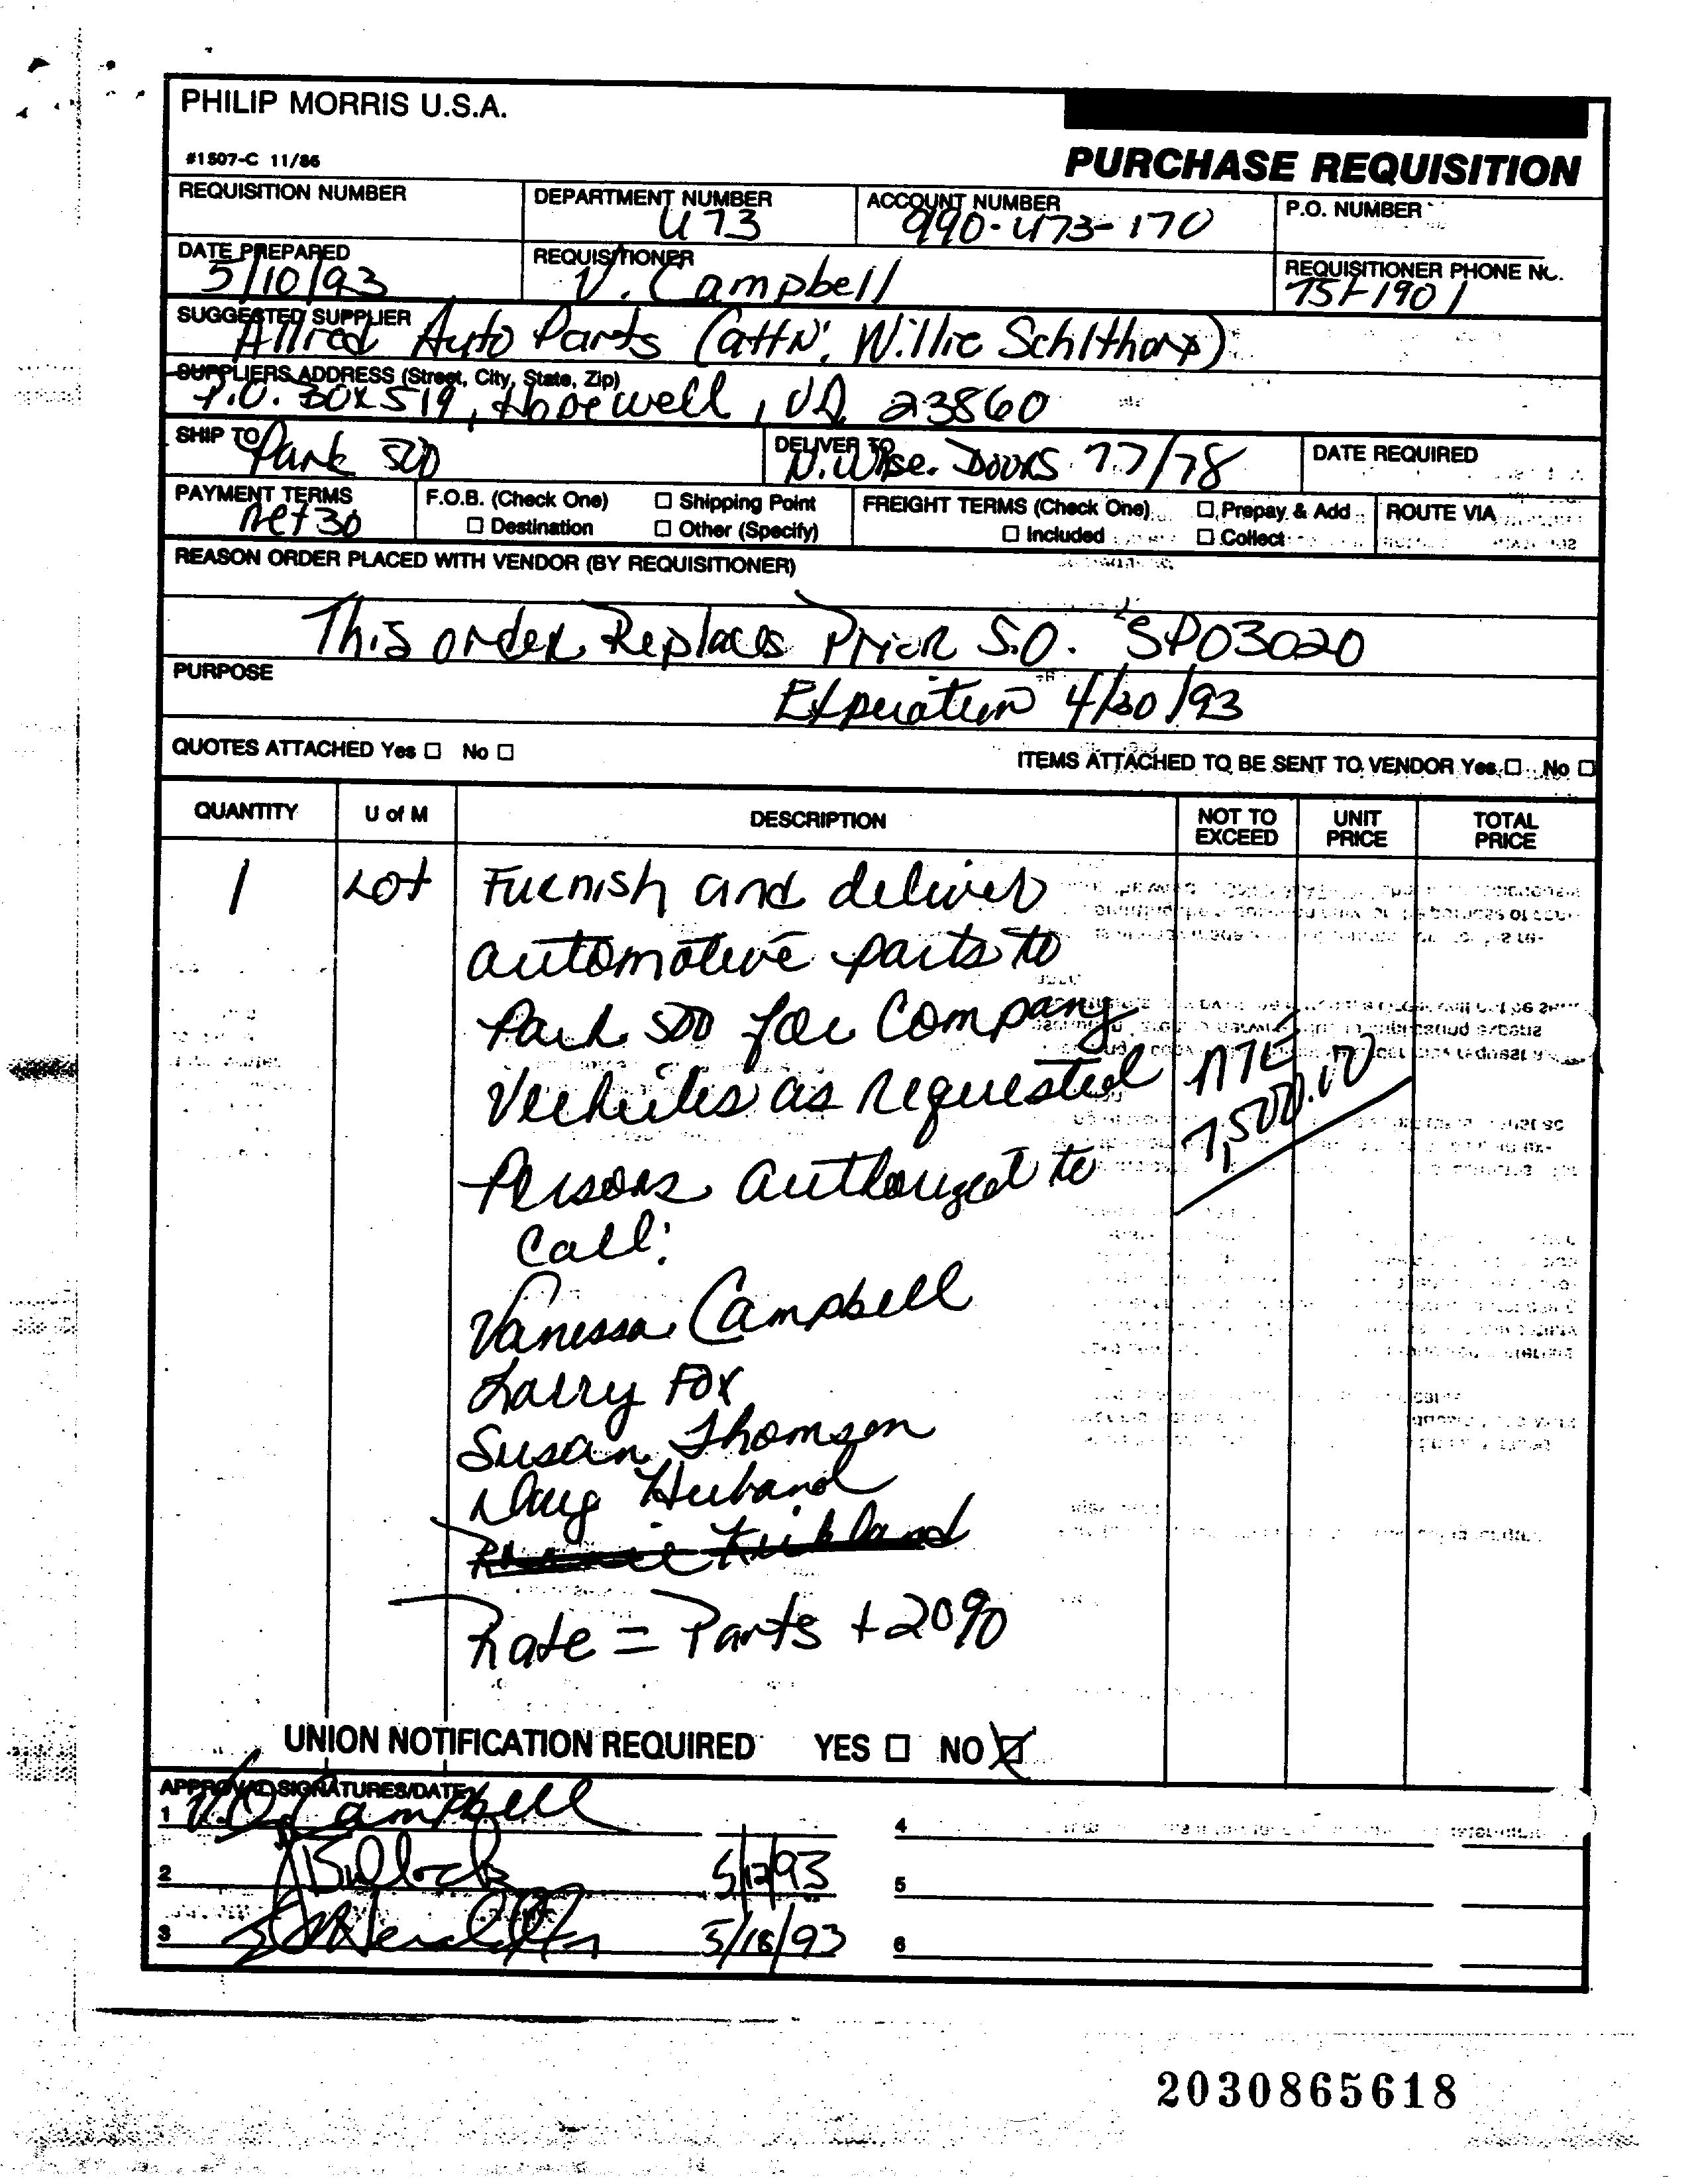 PHILIP MORRIS U.S.A.
#1507-C 11/86
PURCHASE REQUISITION
REQUISITION NUMBER
DEPARTMENT NUMBER
473
ACCOUNT NUMBER
990-473-170
P.O. NUMBER
DATE PREPARED
5/10/93
REQUISITIONER
V. Campbell
REQUISITIONER PHONE NO.
751-1901
SUGGESTED SUPPLIER
Allred Auto Parts (attN: Willie Schlthorp)
SUPPLIERS ADDRESS (Street, City, State, Zip)
P.O. Box 519, Hopewell, VA 23860
SHIP TO
Park 500
DELIVER TO
N. Wse. Doors 77/78
DATE REQUIRED
PAYMENT TERMS
net 30
F.O.B. (Check One) ☐ Shipping Point
☐ Destination ☐ Other (Specify)
FREIGHT TERMS (Check One) ☐ Prepay & Add
☐ Included ☐ Collect
ROUTE VIA
REASON ORDER PLACED WITH VENDOR (BY REQUISITIONER)
This order Replaces Prior S.O. SP03020
PURPOSE
Expiration 4/30/93
QUOTES ATTACHED Yes ☐ No ☐
ITEMS ATTACHED TO BE SENT TO VENDOR Yes ☐ No ☐
QUANTITY U of M DESCRIPTION NOT TO EXCEED UNIT PRICE TOTAL PRICE
1 Lot Furnish and deliver
automotive parts to
Park 500 for Company
Vechicles as requested
NTE
7,500.00
Persons authorized to
Call:
Vanessa Campbell
Larry Fox
Susan Thomson
Doug Huband
Kirkland
Rate = Parts + 20%
UNION NOTIFICATION REQUIRED YES ☐ NO ☒
APPROVAL SIGNATURES/DATE
1 V.D. Campbell
2 Bullock 5/12/93
3 5/18/93
4
5
6
2030865618